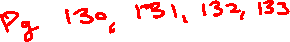 Pg 130, 131, 132, 133